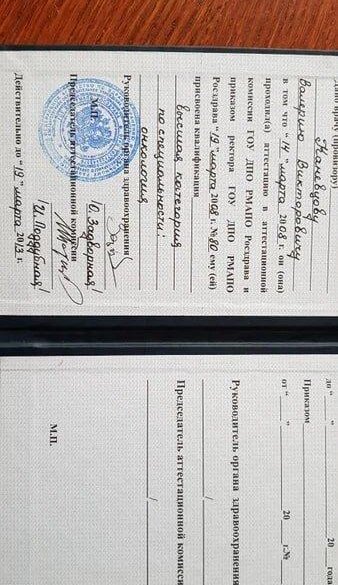 Дано врачу (провизору)
Паневцову
Валерию Викторовичу
в том что "14" марта 2008 г. он (она)
проходил(а) аттестацию в аттестационной
комиссии ГОУ ДПО РМАПО Росздрава и
приказом ректора ГОУ ДПО РМАПО
Росздрава "19" марта 2008 г. № 80 ему (ей)
присвоена квалификация
высшая категория
по специальности:
онкология
Руководитель органа здравоохранения
М.П.
Председатель аттестационной комиссии
Действительно до "19" марта 2013 г.
до " " 20 года
Приказом
от " " 20 г.№
Руководитель органа здравоохранения
/
Председатель аттестационной комиссии
/
М.П.